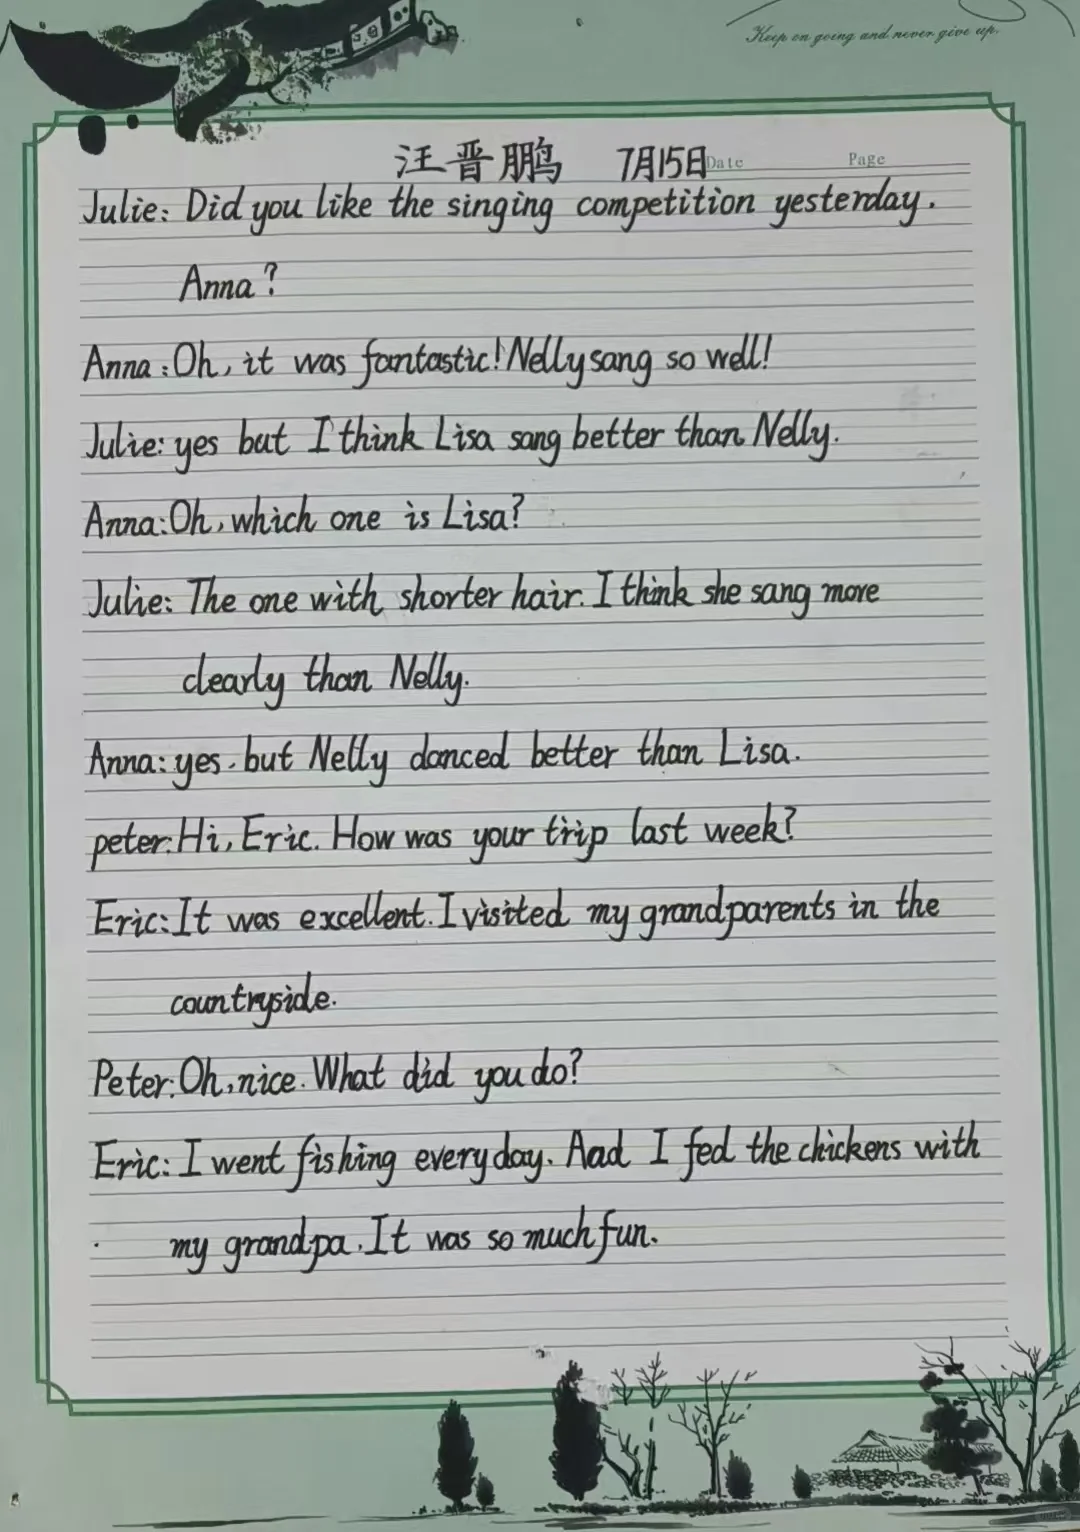 Keep on going and never give up.
汪晋鹏 7月15日 Date Page
Julie: Did you like the singing competition yesterday.
Anna?
Anna: Oh, it was fantastic! Nelly sang so well!
Julie: yes but I think Lisa sang better than Nelly.
Anna: Oh, which one is Lisa?
Julie: The one with shorter hair. I think she sang more
clearly than Nelly.
Anna: yes. but Nelly danced better than Lisa.
peter: Hi, Eric. How was your trip last week?
Eric: It was excellent. I visited my grandparents in the
countryside.
Peter: Oh, nice. What did you do?
Eric: I went fishing every day. Aad I fed the chickens with
my grandpa. It was so much fun.